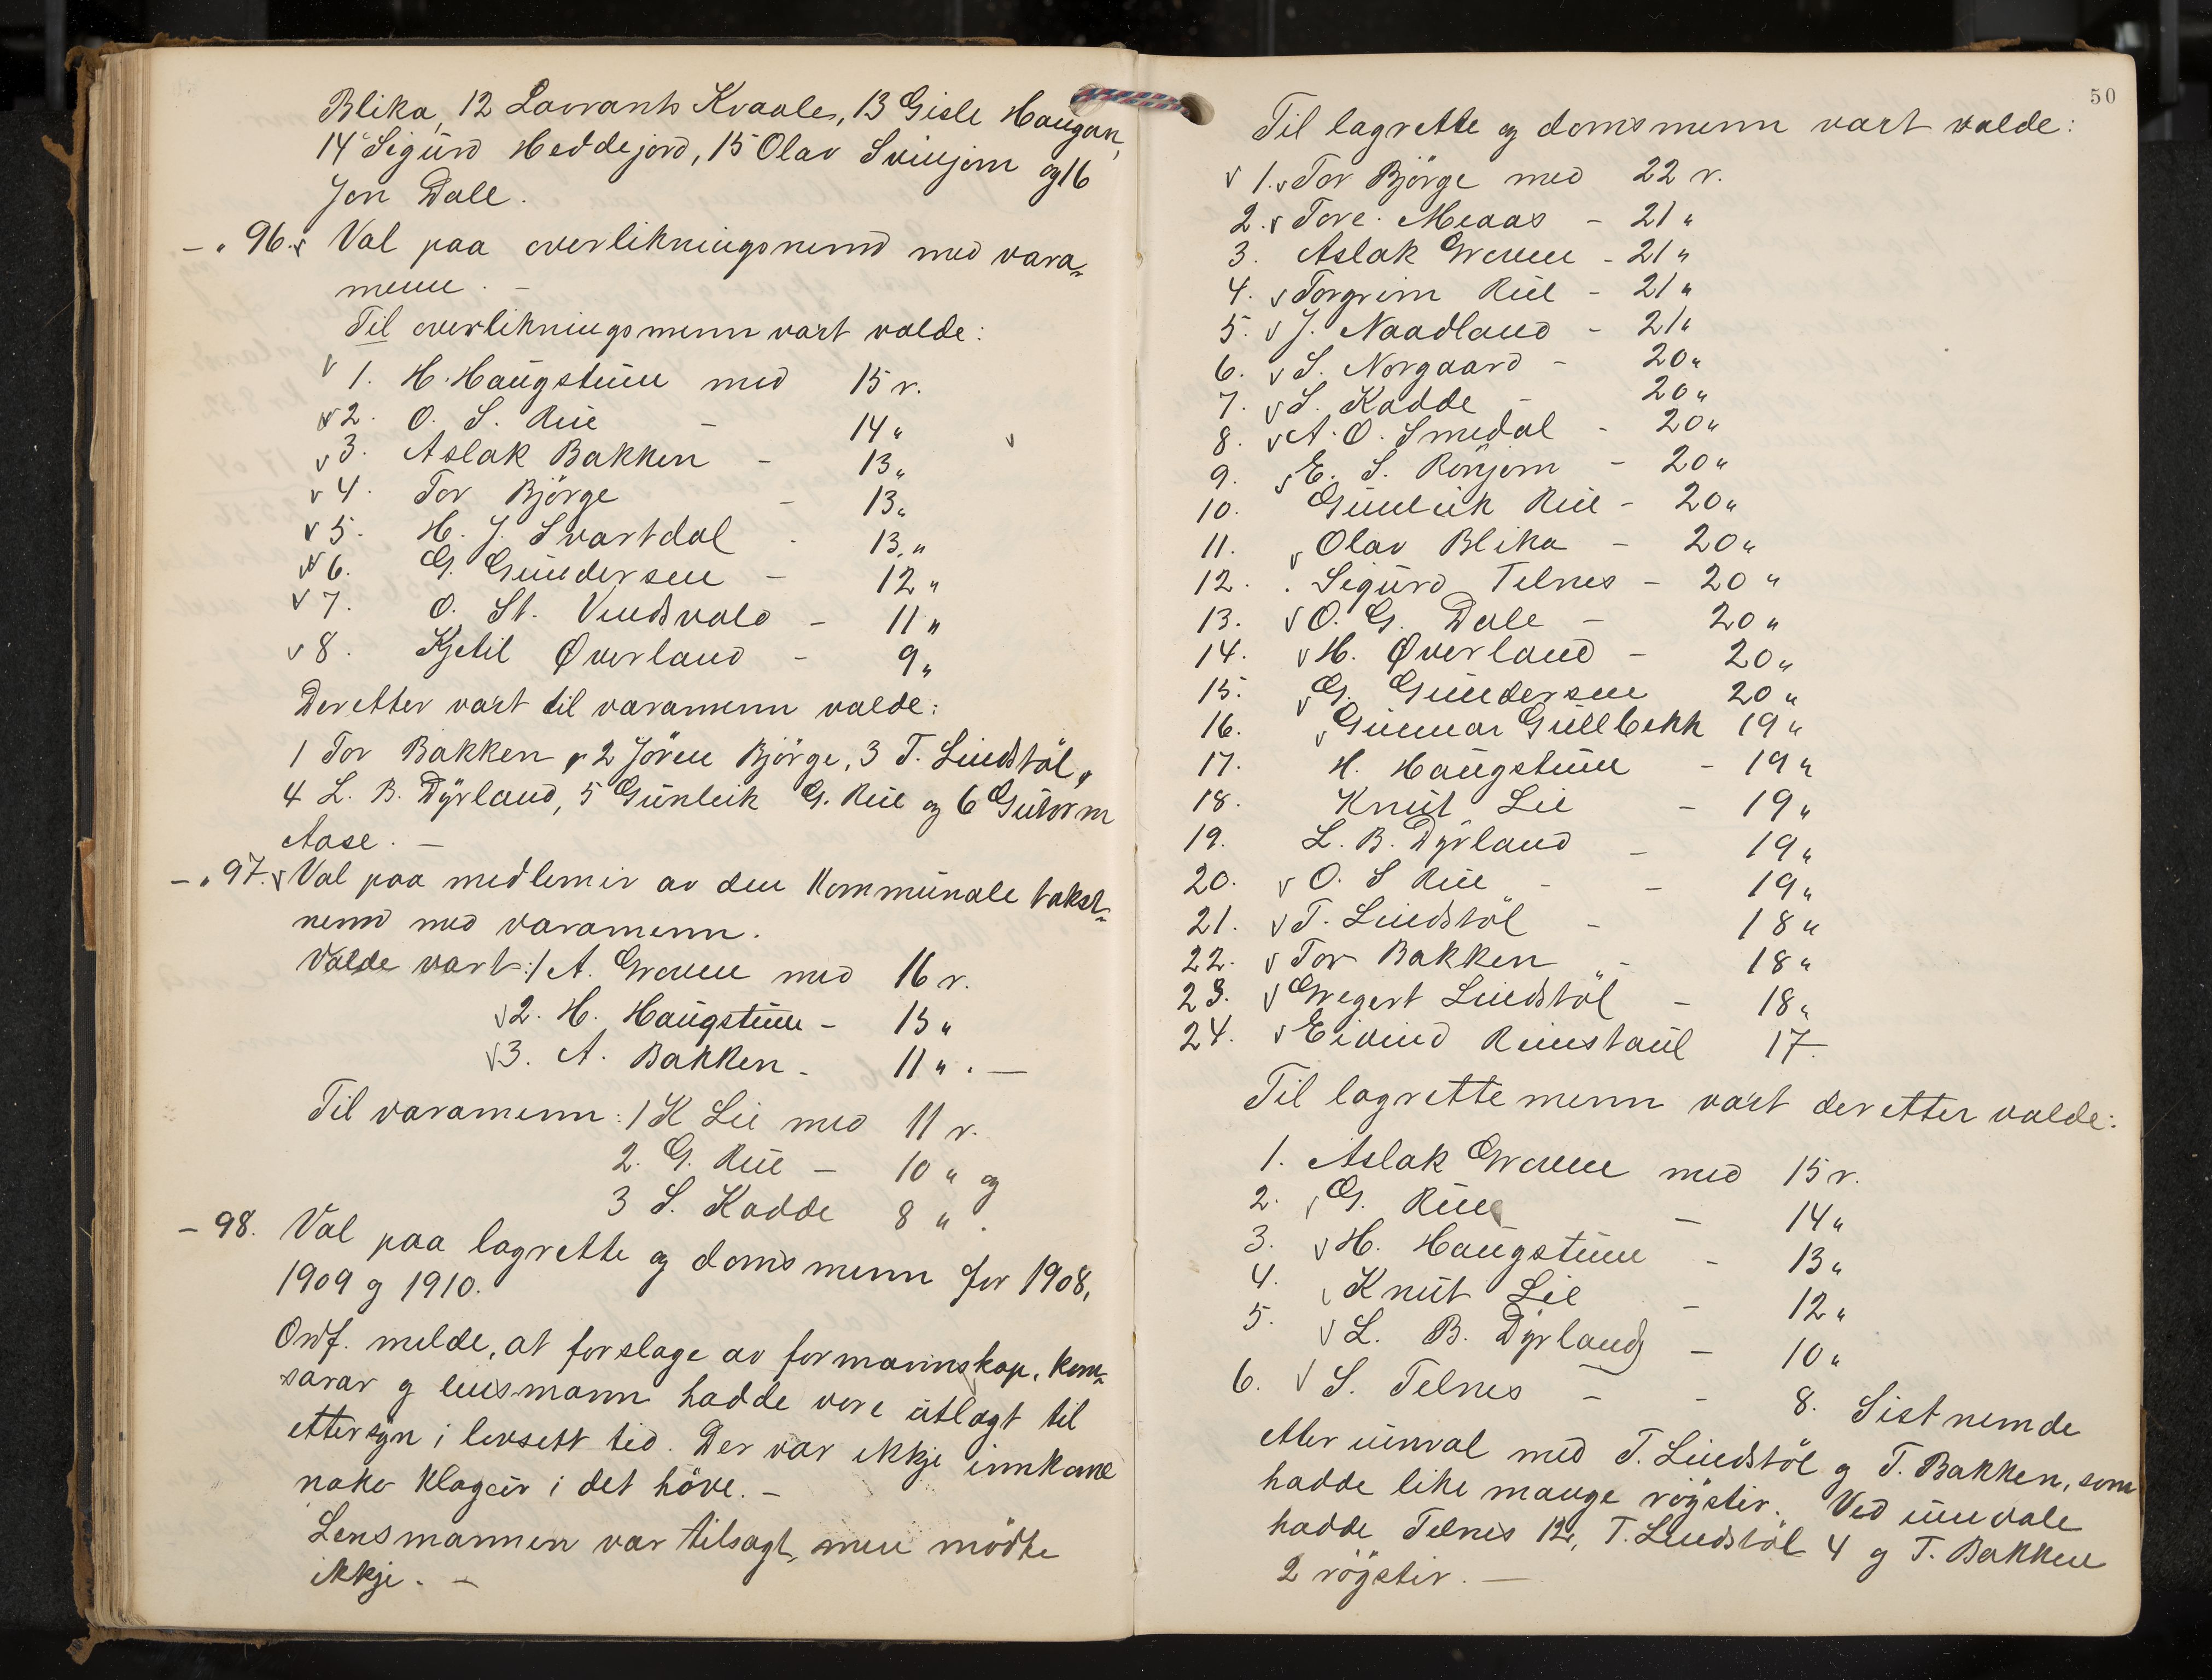 Blika, 12 Lavrants Kvaale, 13 Gisle Haugan,
14 Sigurd Heddejord, 15 Olav Svinjom og 16
Jon Dale.
- „ 96. Val paa overlikningsnemd med vara-
menn. -
Til overlikningsmenn vart valde:
1. H. Haugstuen med 15 r.
2. O. S. Rue - 14 "
3. Aslak Bakken - 13 "
4. Tor Björge - 13 "
5. H. J. Svartdal - 13 "
6. G. Gundersen - 12 "
7. O. St. Vindsvald - 11 "
8. Kjetil Øverland - 9 "
Deretter vart til varamenn valde:
1 Tor Bakken, 2 Jören Björge, 3 T. Lindstöl,
4 L. B. Dyrland, 5 Gunleik G. Rue og 6 Gutorm
Aase. -
- „ 97. Val paa medlemir av den kommunale takst-
nemd med varamenn.
Valde vart: 1 A. Graven med 16 r.
2. H. Haugstuen - 15 "
3. A. Bakken - 11 " . -
Til varamenn: 1 K Lie med 11 r.
2. G. Rue - 10 " og
3 S. Kadde 8 " .
- 98. Val paa lagrette og domsmenn for 1908,
1909 og 1910.
Ordf. melde, at forslage av formannskap, kom-
sarar og lensmann hadde vore utlagt til
ettersyn i lovsett tid. Der var ikkje innkome
noko klagur i det höve. -
Lensmannen var tilsagt, men mödte
ikkje. -
50
Til lagrette og domsmenn vart valde:
1. Tor Björge med 22 r.
2. Tore Meaas - 21 "
3. Aslak Graven - 21 "
4. Torgrim Rue - 21 "
5. J. Naadland - 21 "
6. S. Norgaard - 20 "
7. S. Kadde - 20 "
8. A. O. Smedal - 20 "
9. E. S. Rönjom - 20 "
10. Gunleik Rue - 20 "
11. Olav Blika - 20 "
12. Sigurd Telnes - 20 "
13. O. G. Dale - 20 "
14. H. Øverland - 20 "
15. G. Gundersen 20 "
16. Gunnar Gullbekk 19 "
17. H. Haugstuen - 19 "
18. Knut Lie - 19 "
19. L. B. Dyrland - 19 "
20. O. S Rue - - 19 "
21. T. Lindstöl - 18 "
22. Tor Bakken - 18 "
23. Gregert Lindstöl - 18 "
24. Eivind Runstaul 17.
Til lagrettemenn vart deretter valde:
1. Aslak Graven med 15 r.
2. G. Rue - 14 "
3. H. Haugstuen - 13 "
4. Knut Lie - 12 "
5. L. B. Dyrland - 10 "
6. S. Telnes - - 8. Sistnemde
etter umval med T. Lindstöl og T. Bakken, som
hadde like mange röystir. Ved umvale
hadde Telnes 12, T. Lindstöl 4 og T. Bakken
2 röystir. -